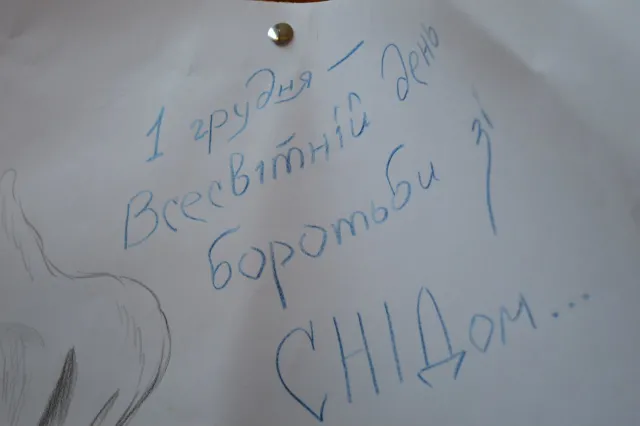 1 грудня –
Всесвітній день
боротьби зі
СНІДом...